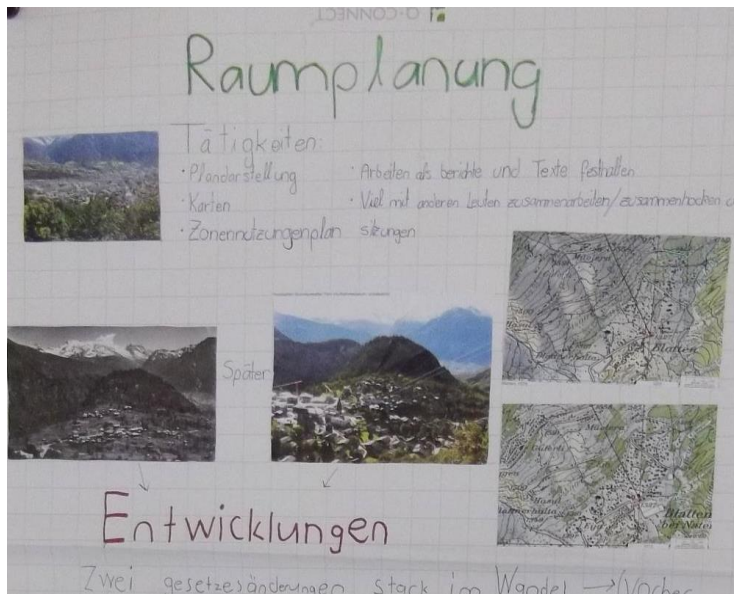 Q-CONNECT
Raumplanung
Tätigkeiten:
· Plandarstellung
· Karten
· Zonennutzungenplan
· Arbeiten als berichte und Texte festhalten
· Viel mit anderen Leuten zusammenarbeiten/zusammenhocken
sitzungen
Später
Blatten
Blatten
bei Naters
Entwicklungen
Zwei gesetzesänderungen stark im Wandel → (Vorher